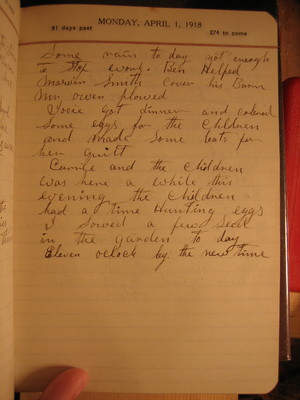 MONDAY, APRIL 1, 1918
91 days past
274 to come
Some rain to day not enough
to stop work. Ben Helped
Marvin Smith Cover his Barn
Mr owen plowed
got dinner and colored
some eggs for the Children
and made some bats for
her quilt
Carrie and the children
was here a while this
evening the Children
had a time Hunting eggs
I sowed a few seed
in the garden to day
Eleven oclock by the new time